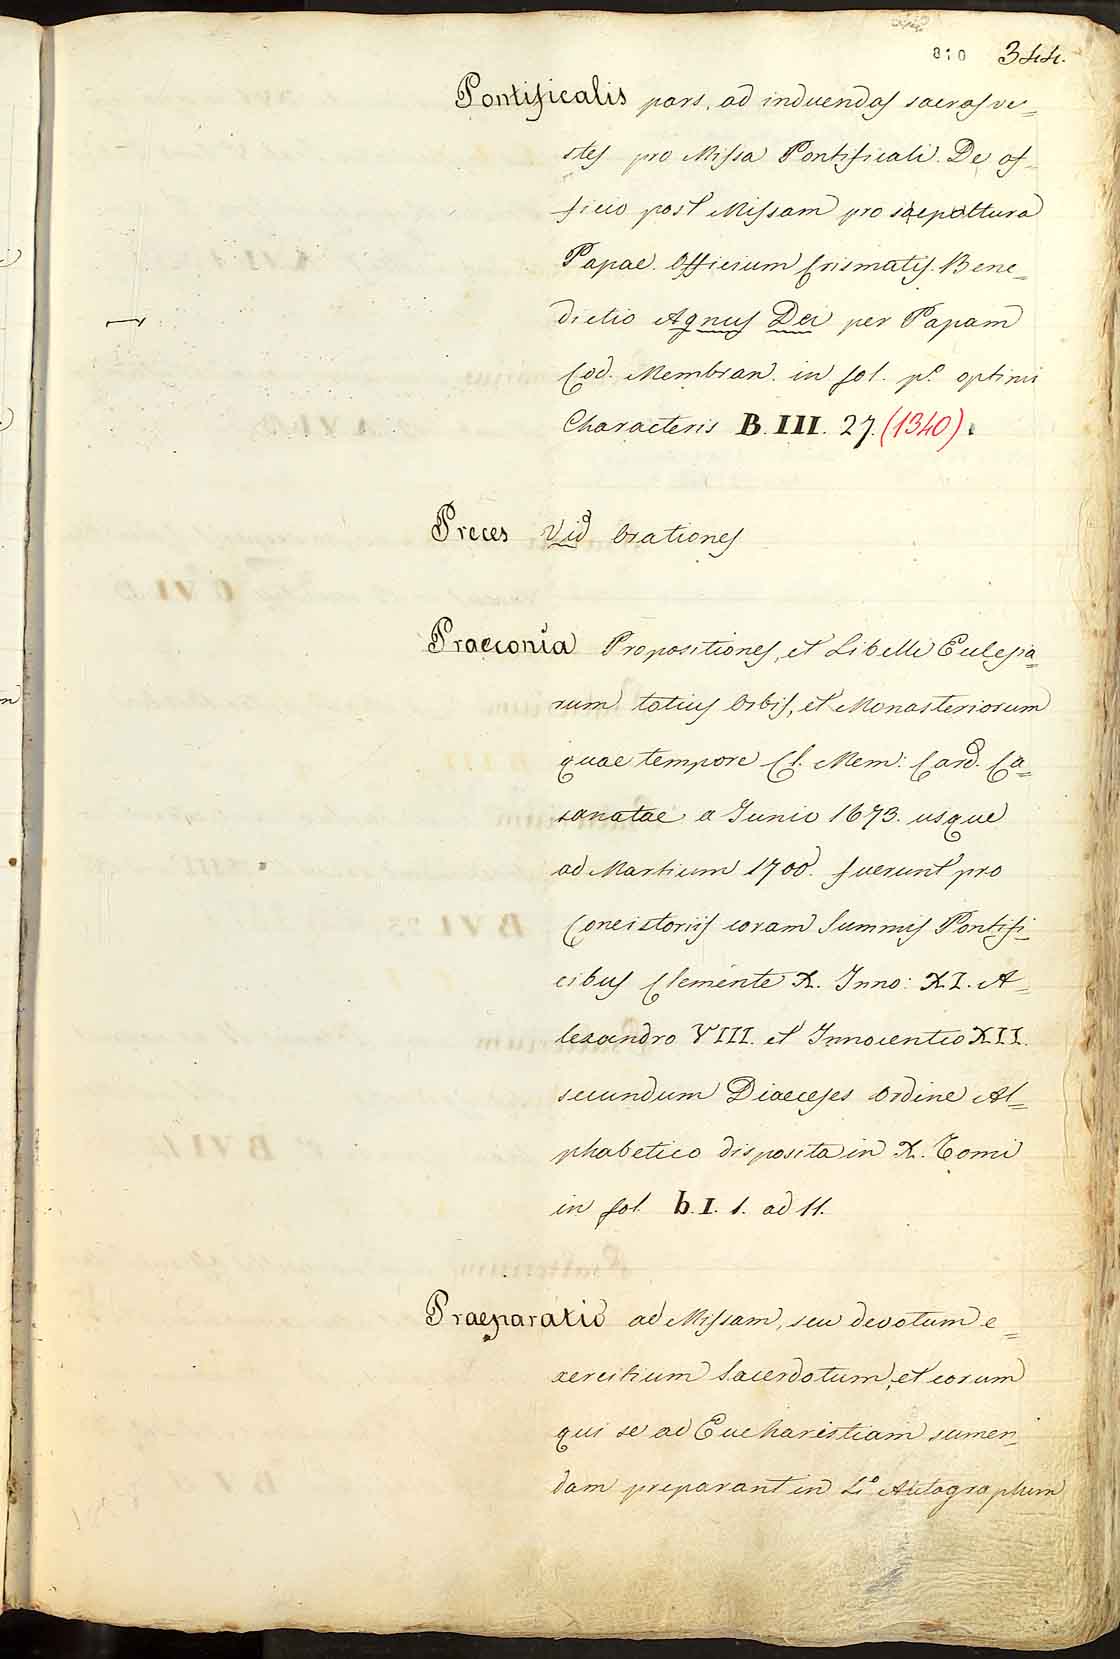 810 344.
Pontificalis pars, ad induendas sacras ve=
stes pro Missa Pontificali. De of=
ficio post Missam pro saepoltura
Papae. Officium Crismatis. Bene=
dictio Agnus Dei per Papam
Cod. Membran. in fol. p.º optimi
Characteris B. III. 27. (1340).
Preces Vid Orationes
Praeconia Propositiones, et Libelli Eclesia=
rum totius Orbis, et Monasteriorum
quae tempore Cl. Mem: Card. Ca=
sanatae a Junio 1673. usque
ad Martium 1700. fuerunt pro
Concistoriis coram Summis Pontifi=
cibus Clemente X. Inno: XI. A=
lexandro VIII. et Innocentio XII.
secundum Diaeceses Ordine Al=
phabetico disposita in X. Tomi
in fol. b. I. 1. ad 11.
Praeparatio ad Missam, seu devotum e=
xercitium Sacerdotum, et eorum
qui se ad Eucharistiam sumen=
dam preparant in 4.º Autographum